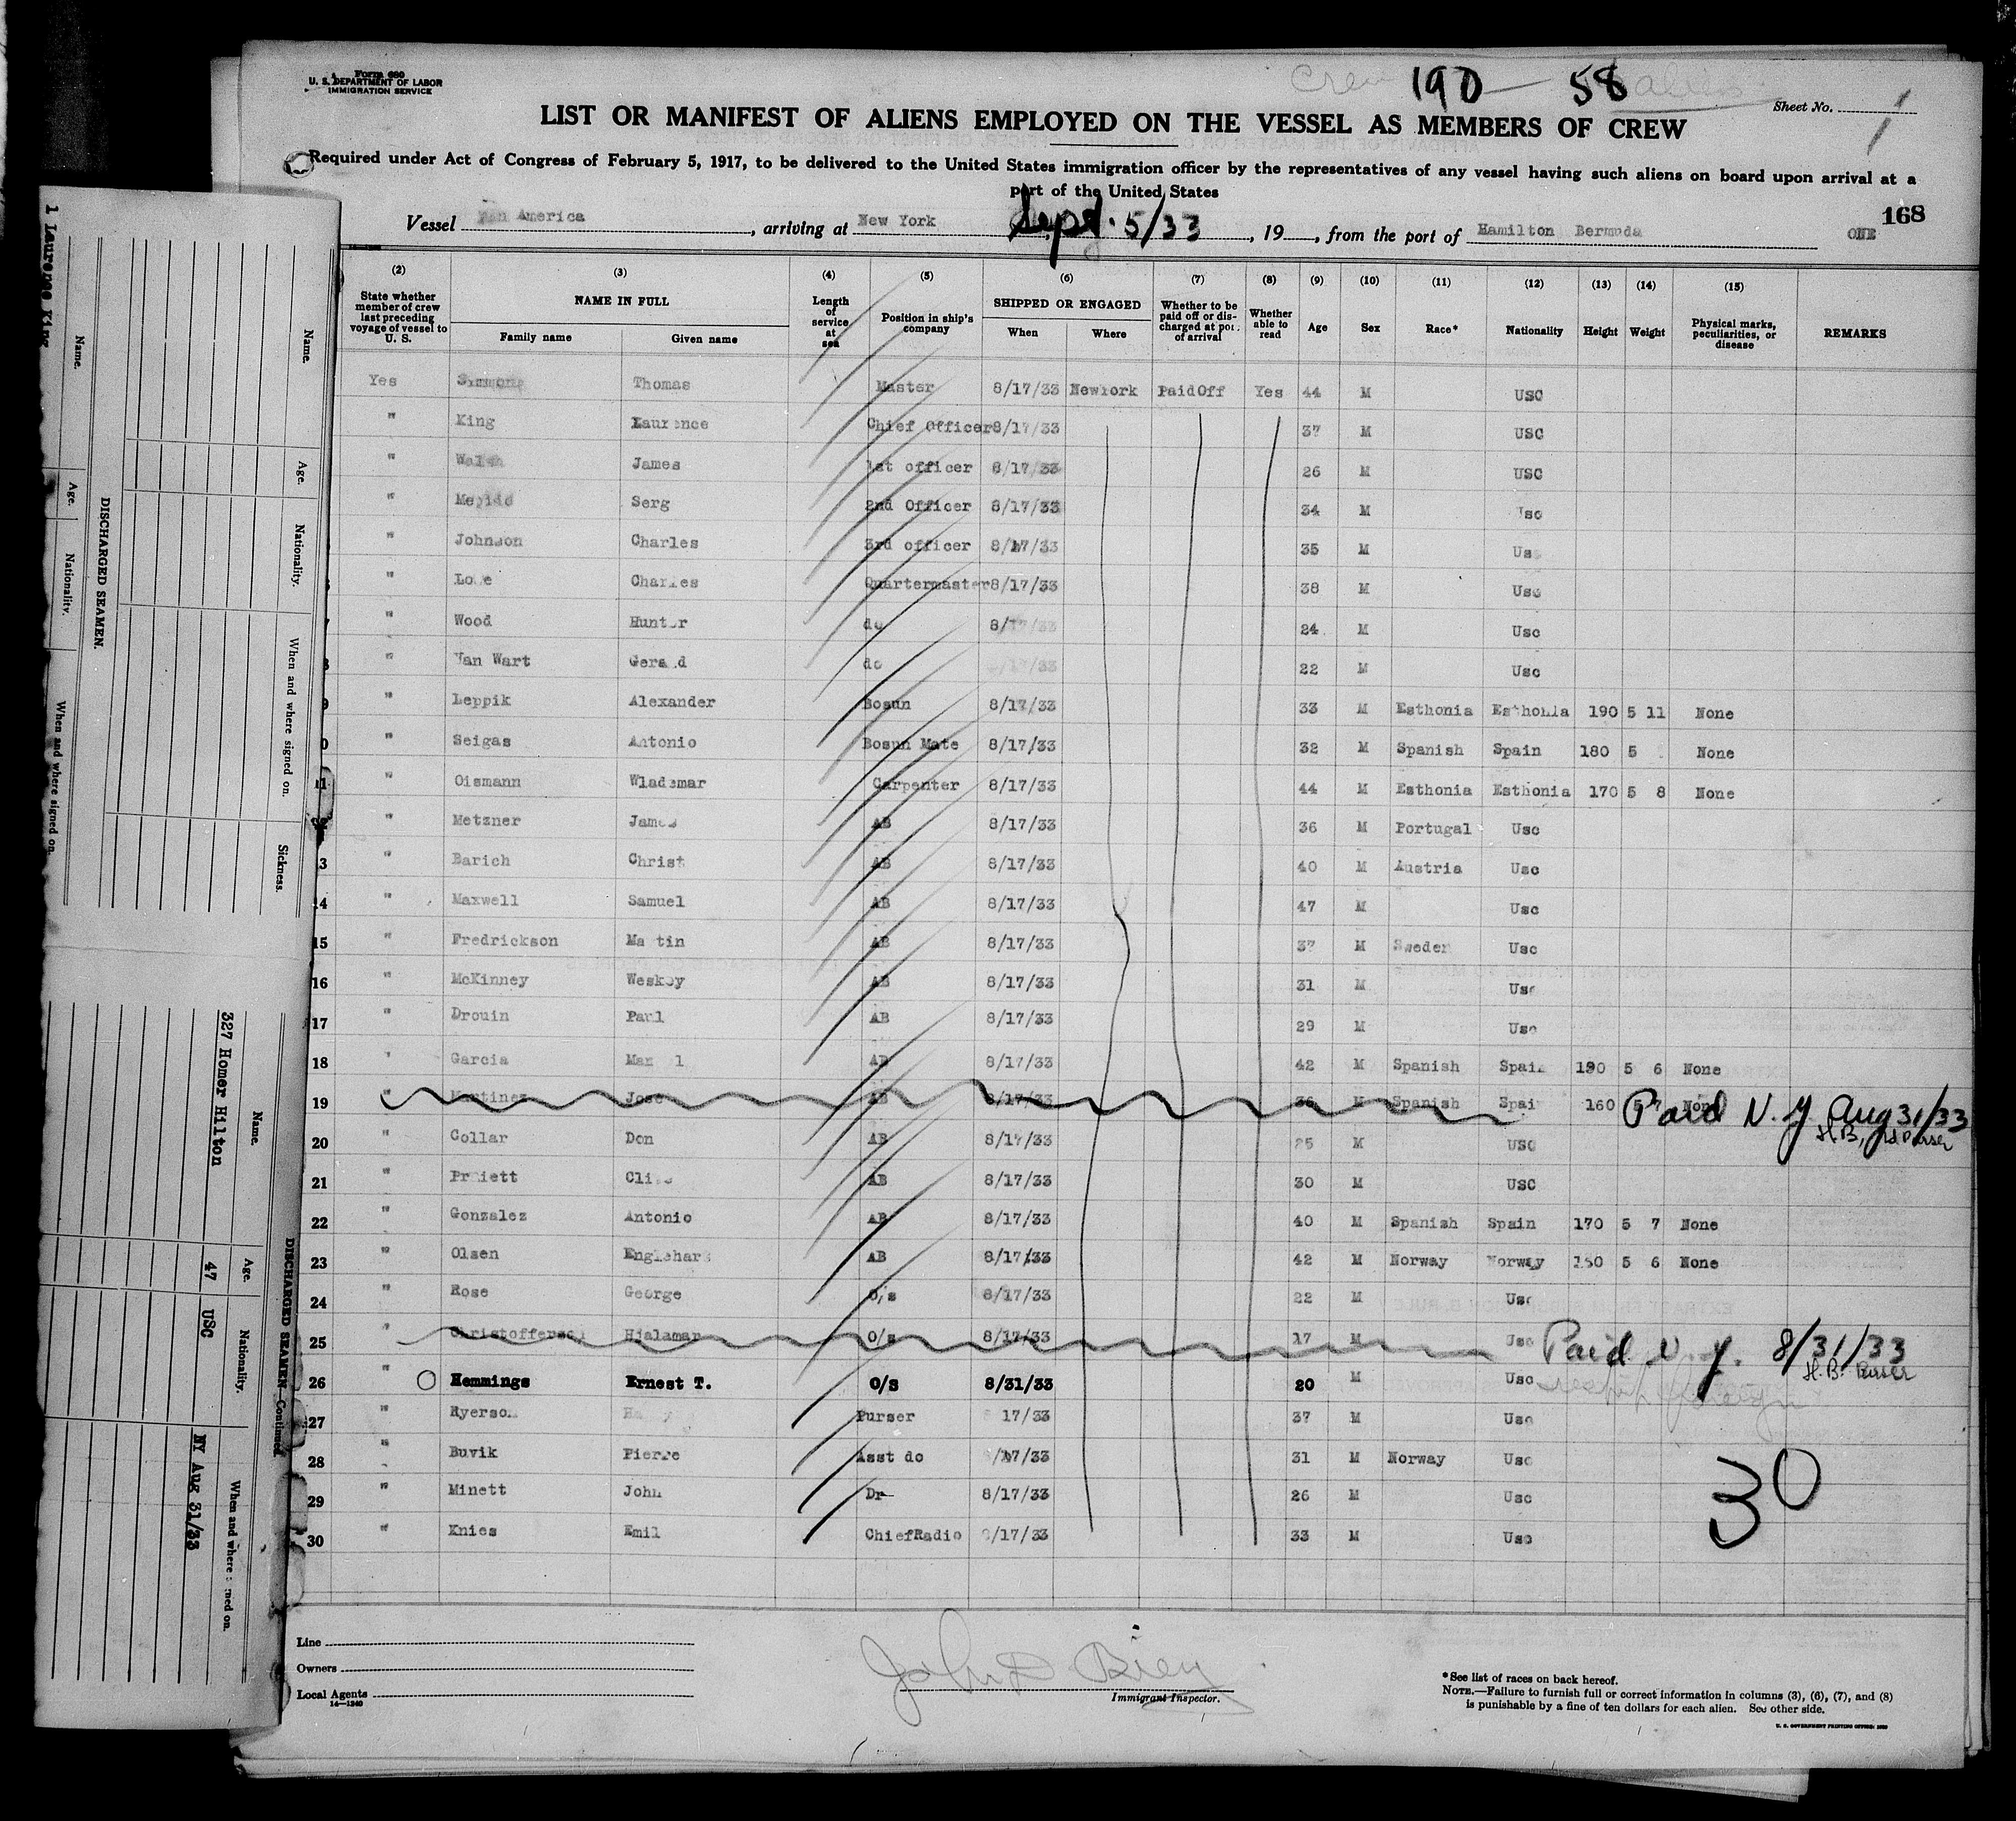 Form 680
U. S. DEPARTMENT OF LABOR
IMMIGRATION SERVICE
Crew 190 — 58 aliens
Sheet No. 1
1
LIST OR MANIFEST OF ALIENS EMPLOYED ON THE VESSEL AS MEMBERS OF CREW
Required under Act of Congress of February 5, 1917, to be delivered to the United States immigration officer by the representatives of any vessel having such aliens on board upon arrival at a
port of the United States
168
Vessel Pan America, arriving at New York Sept. 5/33, 19, from the port of Hamilton Bermuda ONE
(2) (3) (4) (5) (6) (7) (8) (9) (10) (11) (12) (13) (14) (15)
State whether member of crew last preceding voyage of vessel to U. S. NAME IN FULL Family name Given name Length of service at sea Position in ship's company SHIPPED OR ENGAGED When Where Whether to be paid off or discharged at port of arrival Whether able to read Age Sex Race* Nationality Height Weight Physical marks, peculiarities, or disease REMARKS
Yes Thomas Master 8/17/33 NewYork PaidOff Yes 44 M USC
" King Laurence Chief Officer 8/17/33 37 M USC
" James 1st officer 8/17/33 26 M USC
" Serg 2nd Officer 8/17/33 34 M Usc
" Johnson Charles 3rd officer 8/17/33 35 M Us
" Charles Quartermaster 8/17/33 38 M Usc
" Wood Hunter do 8/17/33 24 M Usc
" Van Wart Gerald do 22 M Usc
9 " Leppik Alexander Bosun 8/17/33 33 M Esthonia Esthonia 190 5 11 None
0 " Seigas Antonio Bosun Mate 8/17/33 32 M Spanish Spain 180 5 None
11 " Oismann Wlademar Carpenter 8/17/33 44 M Esthonia Esthonia 170 5 8 None
" Metzner James AB 8/17/33 36 M Portugal Usc
3 " Barich Christ AB 8/17/33 40 M Austria Usc
14 " Maxwell Samuel AB 8/17/33 47 M Usc
15 " Fredrickson Martin AB 8/17/33 37 M Sweden Usc
16 " McKinney AB 8/17/33 31 M Usc
17 " Drouin Paul AB 8/17/33 29 M Usc
18 " Garcia AB 8/17/33 42 M Spanish Spain 190 5 6 None
19 " Martinez Jose AB 8/17/33 36 M Spanish Spain 160 5 7 None Paid N. Y Aug 31/33
H.B, Purser
20 " Collar Don AB 8/17/33 25 M USC
21 " AB 8/17/33 30 M USC
22 " Gonzalez Antonio AB 8/17/33 40 M Spanish Spain 170 5 7 None
23 " Olsen AB 8/17/33 42 M Norway Norway 150 5 6 None
24 " Rose George O/s 8/17/33 22 M Usc
25 " Christofferson Hjalamar O/s 8/17/33 17 M Usc Paid N. Y. 8/31/33
H.B. Purser
26 " Hemmings Ernest T. O/S 8/31/33 20 M Usc
27 " Ryerson Purser 17/33 37 M Usc
28 " Buvik Pierre Asst do 17/33 31 M Norway Usc
29 " Minett John Dr 8/17/33 26 M Usc
30 " Knies Emil ChiefRadio 8/17/33 33 M Usc
30
Line
Owners
Local Agents
14—1240
Immigrant Inspector.
*See list of races on back hereof.
NOTE.—Failure to furnish full or correct information in columns (3), (6), (7), and (8)
is punishable by a fine of ten dollars for each alien. See other side.
U. S. GOVERNMENT PRINTING OFFICE:
1 Laurence King
Name. Age. Nationality. When and where signed on.
DISCHARGED SEAMEN.
Name. Age. Nationality. When and where signed on. Sickness.
327 Homer Hilton 47 USC NY Aug 31/33
Name. Age. Nationality. When and where signed on.
DISCHARGED SEAMEN—Continued